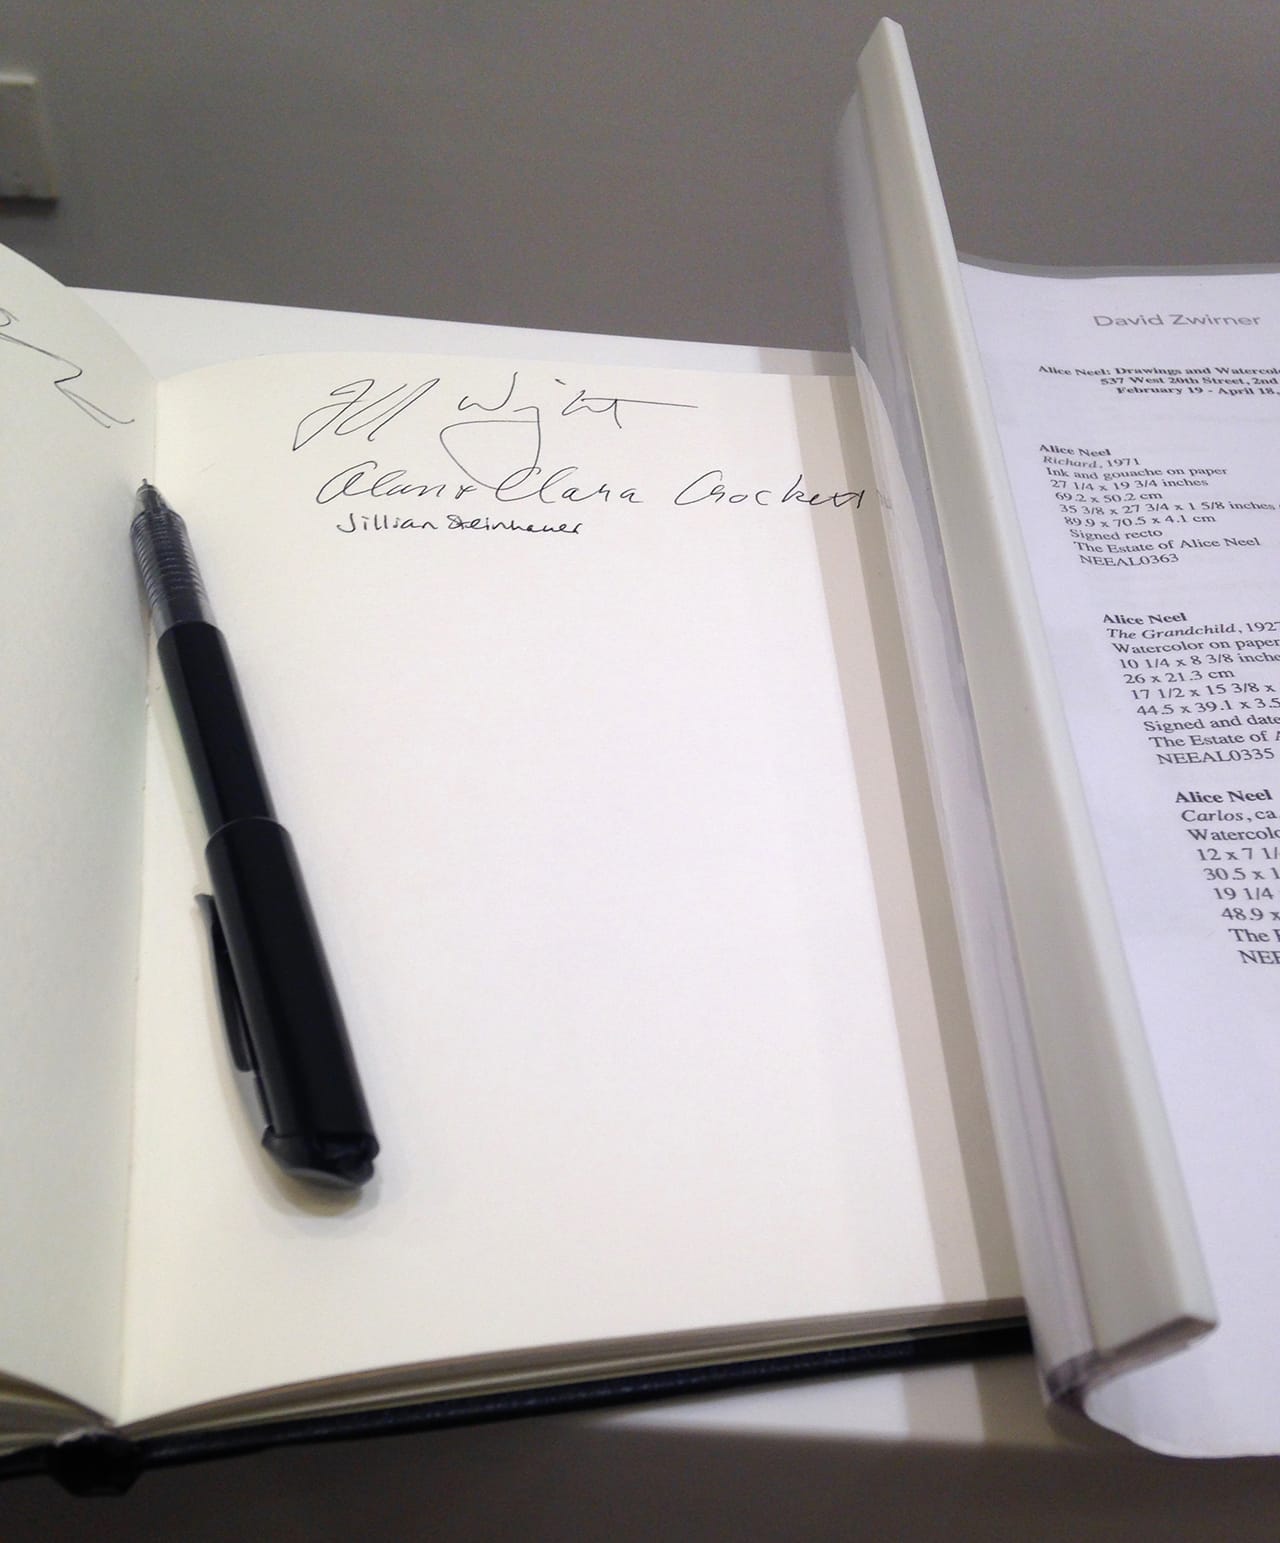 Alan + Clara Crockett
Jillian Steinhauer
David Zwirner
Alice Neel: Drawings and Watercol
537 West 20th Street, 2nd
February 19 - April 18,
Alice Neel
Richard, 1971
Ink and gouache on paper
27 1/4 x 19 3/4 inches
69.2 x 50.2 cm
35 3/8 x 27 3/4 x 1 5/8 inches
89.9 x 70.5 x 4.1 cm
Signed recto
The Estate of Alice Neel
NEEAL0363
Alice Neel
The Grandchild, 1927
Watercolor on paper
10 1/4 x 8 3/8 inche
26 x 21.3 cm
17 1/2 x 15 3/8 x
44.5 x 39.1 x 3.5
Signed and date
The Estate of A
NEEAL0335
Alice Neel
Carlos, ca.
Watercolo
12 x 7 1/
30.5 x 1
19 1/4
48.9 x
The E
NEE